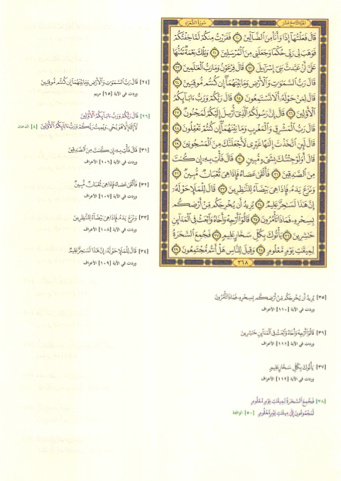 قَالَ فَعَلْتُهَا إِذًا وَأَنَا مِنَ الضَّالِّينَ ٢٠ فَفَرَرْتُ مِنكُمْ لَمَّا خِفْتُكُمْ
فَوَهَبَ لِي رَبِّي حُكْمًا وَجَعَلَنِي مِنَ الْمُرْسَلِينَ ٢١ وَتِلْكَ نِعْمَةٌ تَمُنُّهَا
عَلَيَّ أَنْ عَبَّدتَّ بَنِي إِسْرَائِيلَ ٢٢ قَالَ فِرْعَوْنُ وَمَا رَبُّ الْعَالَمِينَ ٢٣
قَالَ رَبُّ السَّمَاوَاتِ وَالْأَرْضِ وَمَا بَيْنَهُمَا إِن كُنتُم مُّوقِنِينَ ٢٤
قَالَ لِمَنْ حَوْلَهُ أَلَا تَسْتَمِعُونَ ٢٥ قَالَ رَبُّكُمْ وَرَبُّ آبَائِكُمُ
الْأَوَّلِينَ ٢٦ قَالَ إِنَّ رَسُولَكُمُ الَّذِي أُرْسِلَ إِلَيْكُمْ لَمَجْنُونٌ ٢٧
قَالَ رَبُّ الْمَشْرِقِ وَالْمَغْرِبِ وَمَا بَيْنَهُمَا إِن كُنتُمْ تَعْقِلُونَ ٢٨
قَالَ لَئِنِ اتَّخَذْتَ إِلَٰهًا غَيْرِي لَأَجْعَلَنَّكَ مِنَ الْمَسْجُونِينَ ٢٩
قَالَ أَوَلَوْ جِئْتُكَ بِشَيْءٍ مُّبِينٍ ٣٠ قَالَ فَأْتِ بِهِ إِن كُنتَ
مِنَ الصَّادِقِينَ ٣١ فَأَلْقَىٰ عَصَاهُ فَإِذَا هِيَ ثُعْبَانٌ مُّبِينٌ ٣٢
وَنَزَعَ يَدَهُ فَإِذَا هِيَ بَيْضَاءُ لِلنَّاظِرِينَ ٣٣ قَالَ لِلْمَلَإِ حَوْلَهُ
إِنَّ هَٰذَا لَسَاحِرٌ عَلِيمٌ ٣٤ يُرِيدُ أَن يُخْرِجَكُم مِّنْ أَرْضِكُم
بِسِحْرِهِ فَمَاذَا تَأْمُرُونَ ٣٥ قَالُوا أَرْجِهْ وَأَخَاهُ وَابْعَثْ فِي الْمَدَائِنِ
حَاشِرِينَ ٣٦ يَأْتُوكَ بِكُلِّ سَحَّارٍ عَلِيمٍ ٣٧ فَجُمِعَ السَّحَرَةُ
لِمِيقَاتِ يَوْمٍ مَّعْلُومٍ ٣٨ وَقِيلَ لِلنَّاسِ هَلْ أَنتُم مُّجْتَمِعُونَ ٣٩
٣٦٨
[٢٤] قَالَ رَبُّ السَّمَاوَاتِ وَالْأَرْضِ وَمَا بَيْنَهُمَا إِن كُنتُم مُّوقِنِينَ
وردت في الآية [٦٥] مريم
[٢٦] قَالَ رَبُّكُمْ وَرَبُّ آبَائِكُمُ الْأَوَّلِينَ
لَا إِلَٰهَ إِلَّا هُوَ يُحْيِي وَيُمِيتُ رَبُّكُمْ وَرَبُّ آبَائِكُمُ الْأَوَّلِينَ [٨] الدخان
[٣١] قَالَ فَأْتِ بِهِ إِن كُنتَ مِنَ الصَّادِقِينَ
وردت في الآية [١٠٦] الأعراف
[٣٢] فَأَلْقَىٰ عَصَاهُ فَإِذَا هِيَ ثُعْبَانٌ مُّبِينٌ
وردت في الآية [١٠٧] الأعراف
[٣٣] وَنَزَعَ يَدَهُ فَإِذَا هِيَ بَيْضَاءُ لِلنَّاظِرِينَ
وردت في الآية [١٠٨] الأعراف
[٣٤] قَالَ لِلْمَلَإِ حَوْلَهُ إِنَّ هَٰذَا لَسَاحِرٌ عَلِيمٌ
وردت في الآية [١٠٩] الأعراف
[٣٥] يُرِيدُ أَن يُخْرِجَكُم مِّنْ أَرْضِكُم بِسِحْرِهِ فَمَاذَا تَأْمُرُونَ
وردت في الآية [١١٠] الأعراف
[٣٦] قَالُوا أَرْجِهْ وَأَخَاهُ وَابْعَثْ فِي الْمَدَائِنِ حَاشِرِينَ
وردت في الآية [١١١] الأعراف
[٣٧] يَأْتُوكَ بِكُلِّ سَحَّارٍ عَلِيمٍ
وردت في الآية [١١٢] الأعراف
[٣٨] فَجُمِعَ السَّحَرَةُ لِمِيقَاتِ يَوْمٍ مَّعْلُومٍ
لَمَجْمُوعُونَ إِلَىٰ مِيقَاتِ يَوْمٍ مَّعْلُومٍ [٥٠] الواقعة